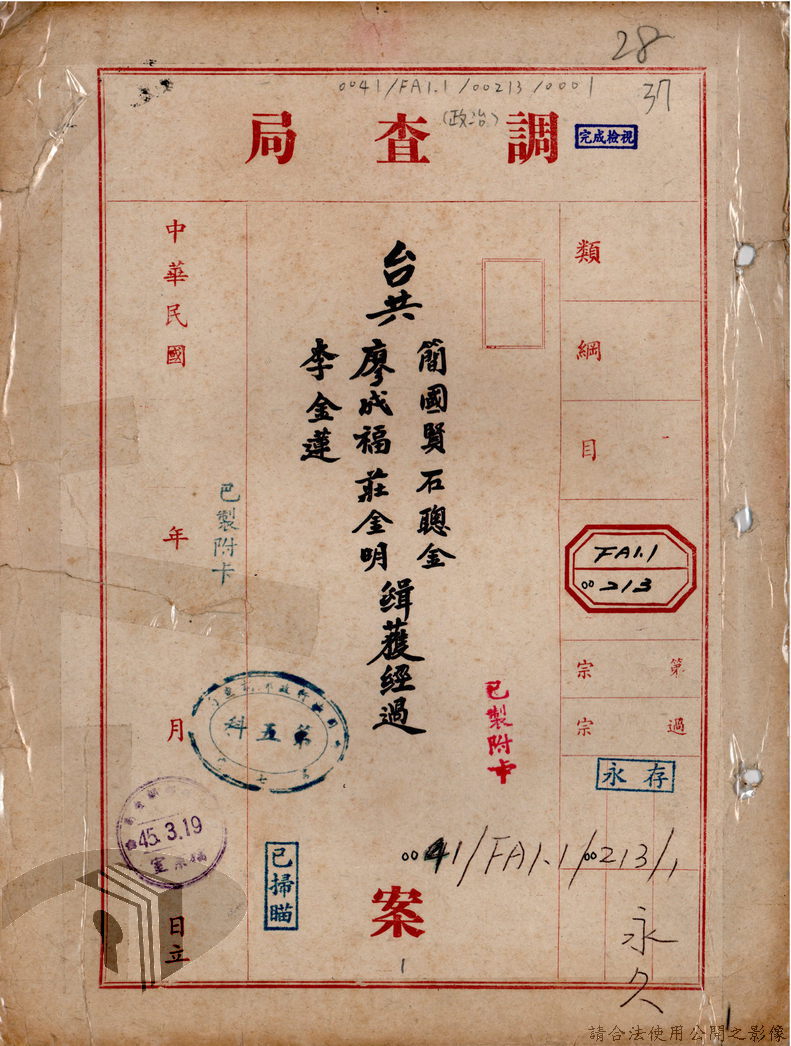 28
37
0041/FA1.1/00213/0001
(政治)
調查局
完成檢視
類
綱
目
FA1.1
00213
第宗
過宗
永存
台共
簡國賢 石聰金
廖成福 莊金明
李金蓮
緝獲經過
已製附卡
已製附卡
中華民國
年
月
日立
第五科
45.3.19
檔案室
已掃瞄
0041/FA1.1/00213/1
案
永久
1
請合法使用公開之影像